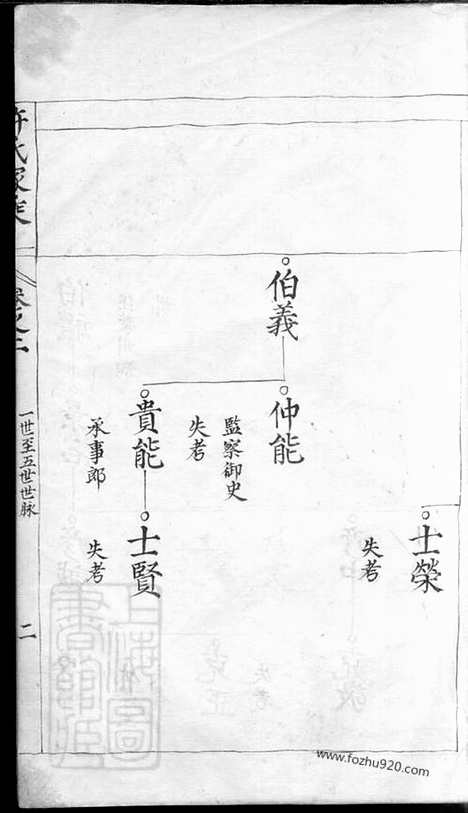 士榮
失考
伯義
仲能
監察御史
失考
貴能
承事郎
士賢
失考
許氏家乘
卷之二
一世至五世世脉
二
上海圖書館藏
www.fozhu920.com